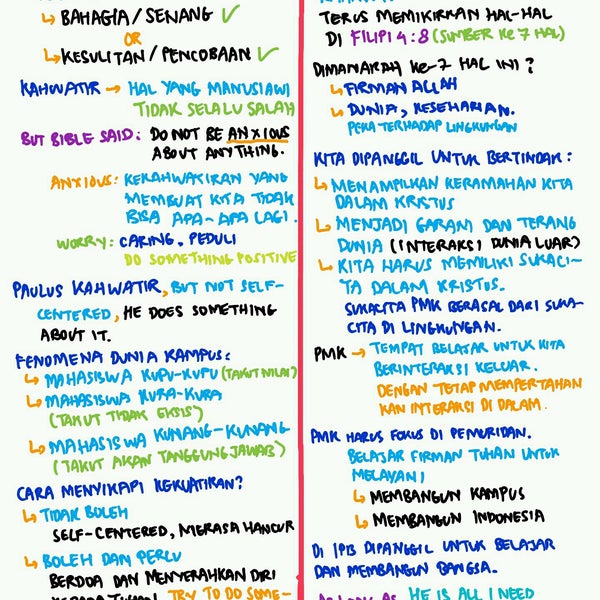 ↳ BAHAGIA / SENANG ✓
OR
↳ KESULITAN / PENCOBAAN ✓
KAHWATIR → HAL YANG MANUSIAWI
TIDAK SELALU SALAH
BUT BIBLE SAID: DO NOT BE ANXIOUS
ABOUT ANYTHING.
ANXIOUS: KEKAHWATIRAN YANG
MEMBUAT KITA TIDAK
BISA APA-APA LAGI.
WORRY: CARING, PEDULI
DO SOMETHING POSITIVE
PAULUS KAHWATIR, BUT NOT SELF-
CENTERED, HE DOES SOMETHING
ABOUT IT.
FENOMENA DUNIA KAMPUS:
↳ MAHASISWA KUPU-KUPU (TAKUT NILAI)
↳ MAHASISWA KURA-KURA
(TAKUT TIDAK EKSIS)
↳ MAHASISWA KUNANG-KUNANG
(TAKUT AKAN TANGGUNG JAWAB)
CARA MENYIKAPI KEKUATIRAN?
↳ TIDAK BOLEH
SELF-CENTERED, MERASA HANCUR
↳ BOLEH DAN PERLU
BERDOA DAN MENYERAHKAN DIRI
KEPADA TUHAN. TRY TO DO SOME-
TERUS MEMIKIRKAN HAL-HAL
DI FILIPI 4:8 (SUMBER KE 7 HAL)
DIMANAKAH KE-7 HAL INI?
↳ FIRMAN ALLAH
↳ DUNIA, KESEHARIAN.
PEKA TERHADAP LINGKUNGAN
KITA DIPANGGIL UNTUK BERTINDAK:
↳ MENAMPILKAN KERAMAHAN KITA
DALAM KRISTUS
↳ MENJADI GARAM DAN TERANG
DUNIA (INTERAKSI DUNIA LUAR)
↳ KITA HARUS MEMILIKI SUKACI-
TA DALAM KRISTUS.
SUKACITA PMK BERASAL DARI SUKA-
CITA DI LINGKUNGAN.
PMK → TEMPAT BELAJAR UNTUK KITA
BERINTERAKSI KELUAR.
DENGAN TETAP MEMPERTAHAN
KAN INTERAKSI DI DALAM.
PMK HARUS FOKUS DI PEMURIDAN.
BELAJAR FIRMAN TUHAN UNTUK
MELAYANI
↳ MEMBANGUN KAMPUS
↳ MEMBANGUN INDONESIA
DI IPB DIPANGGIL UNTUK BELAJAR
DAN MEMBANGUN BANGSA.
AS LONG AS HE IS ALL I NEED